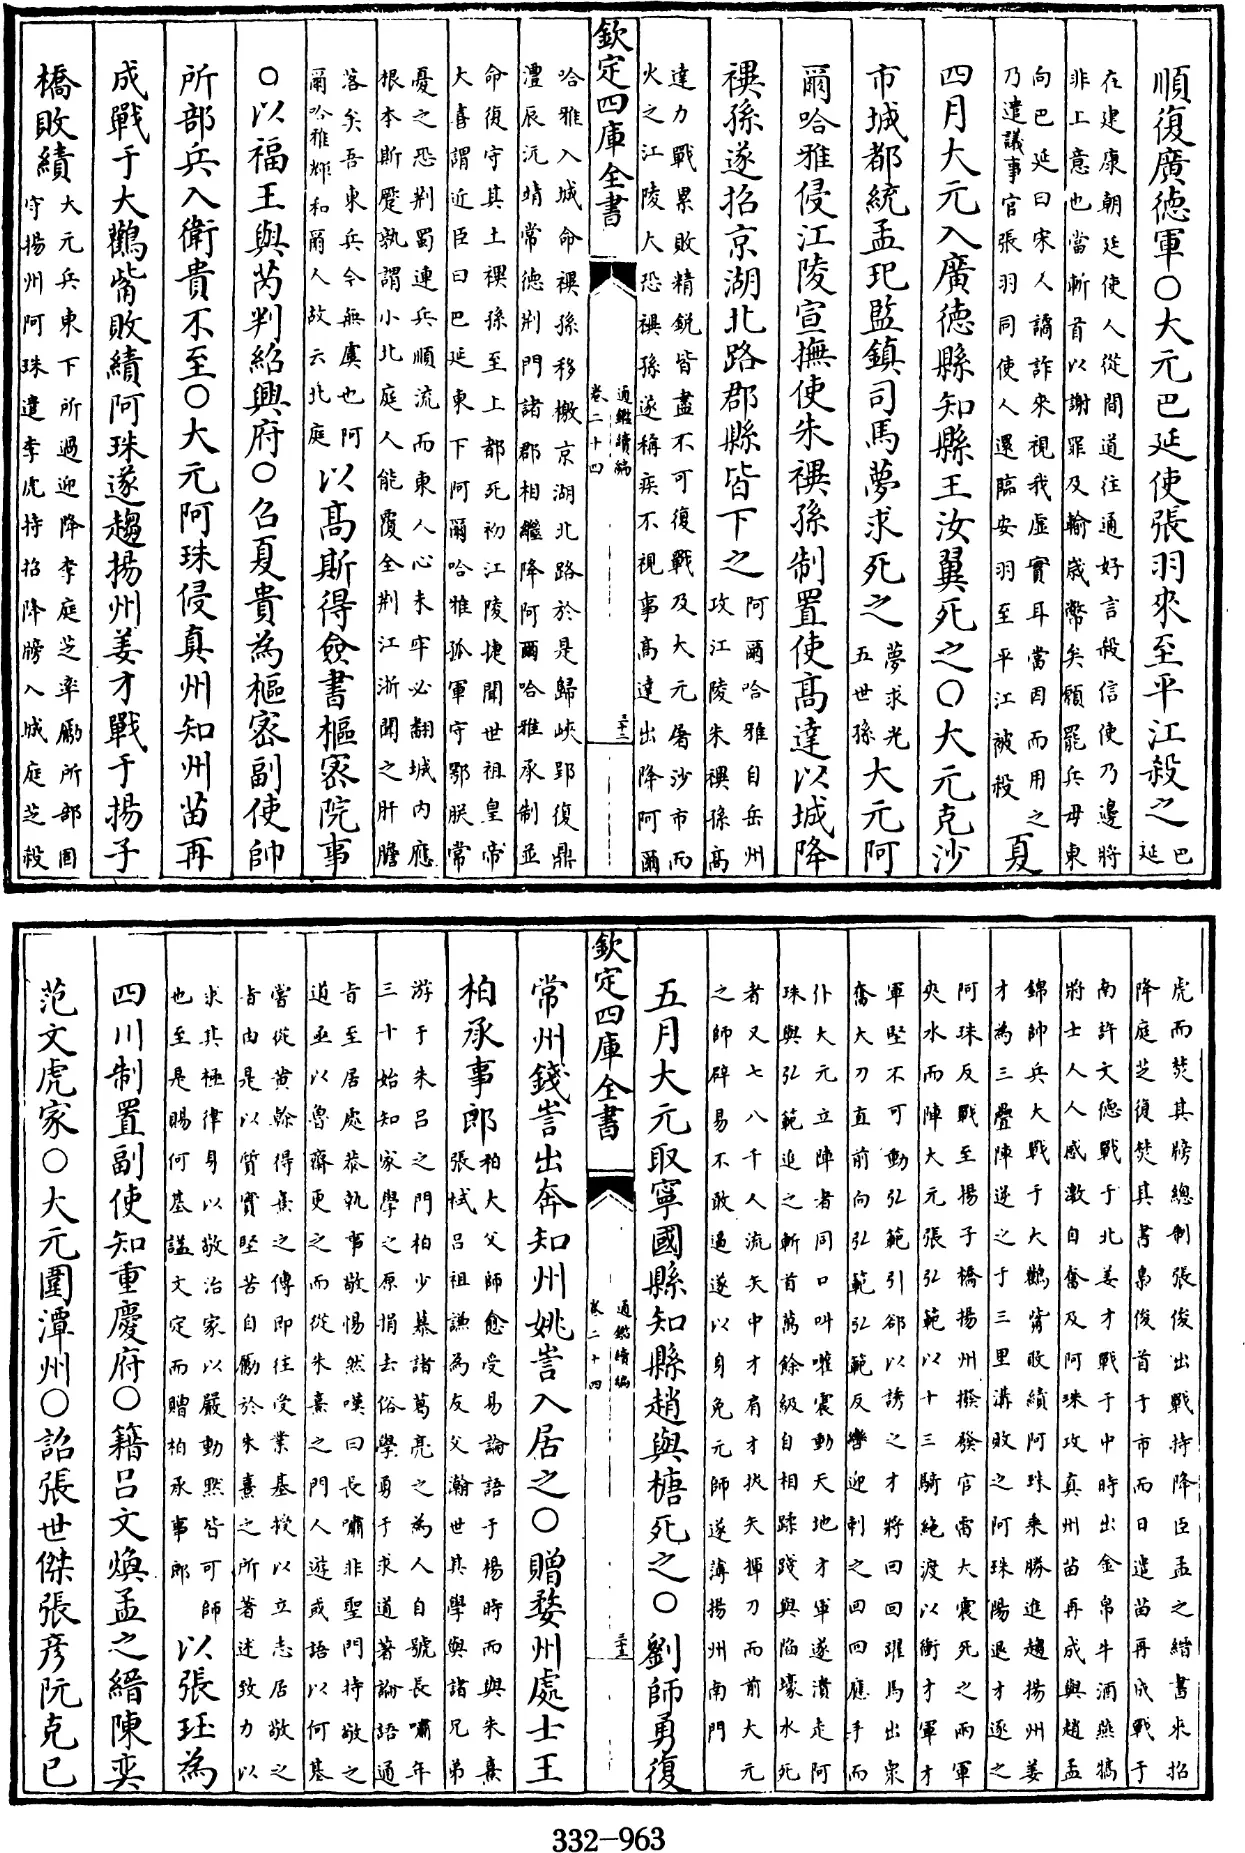 順復廣德軍○大元巴延使張羽來至平江殺之巴
延
在建康朝廷使人從間道往通好言殺信使乃邊將
非上意也當斬首以謝罪及輸歲幣矣願罷兵毋東
向巴延曰宋人譎詐來視我虛實耳當因而用之
乃遣議事官張羽同使人還臨安羽至平江被殺
夏
四月大元入廣德縣知縣王汝翼死之○大元克沙
市城都統孟玘監鎮司馬夢求死之
夢求光
五世孫
大元阿
爾哈雅侵江陵宣撫使朱禩孫制置使高達以城降
禩孫遂招京湖北路郡縣皆下之
阿爾哈雅自岳州
攻江陵朱禩孫高
達力戰累敗精銳皆盡不可復戰及大元屠沙市而
火之江陵大恐禩孫遂稱疾不視事高達出降阿爾
欽定四庫全書
通鑑續編
卷二十四
三十二
哈雅入城命禩孫移檄京湖北路於是歸峽郢復鼎
澧辰沅靖常德荆門諸郡相繼降阿爾哈雅承制並
命復守其土禩孫至上都死初江陵捷聞世祖皇帝
大喜謂近臣曰巴延東下阿爾哈雅孤軍守鄂朕常
憂之恐荆蜀連兵順流而東人心未牢必翻城内應
根本斯蹙孰謂小北庭人能覆全荆江浙聞之肝膽
落矣吾東兵今無虞也阿
爾哈雅輝和爾人故云北庭
以高斯得僉書樞密院事
○以福王與芮判紹興府○召夏貴為樞密副使帥
所部兵入衛貴不至○大元阿珠侵真州知州苗再
成戰于大鸛觜敗績阿珠遂趨揚州姜才戰于揚子
橋敗績
大元兵東下所過迎降李庭芝率勵所部固
守揚州阿珠遣李虎持招降牓入城庭芝殺
虎而焚其牓總制張俊出戰持降臣孟之縉書來招
降庭芝復焚其書梟俊首于市而日遣苗再成戰于
南許文德戰于北姜才戰于中時出金帛牛酒燕犒
將士人人感激自奮及阿珠攻真州苗再成與趙孟
錦帥兵大戰于大鸛觜敗績阿珠乘勝進趨揚州姜
才為三疊陣逆之于三里溝敗之阿珠陽退才逐之
阿珠反戰至揚子橋揚州撥發官雷大震死之兩軍
夾水而陣大元張弘範以十三騎絶渡以衝才軍才
軍堅不可動弘範引郤以誘之才將回回躍馬出衆
奮大刀直前向弘範弘範反轡迎刺之回回應手而
仆大元立陣者同口叫嚾震動天地才軍遂潰走阿
珠與弘範追之斬首萬餘級自相蹂踐與陷壕水死
者又七八千人流矢中才肩才拔矢揮刀而前大元
之師辟易不敢逼遂以身免元師遂薄揚州南門
五月大元取寧國縣知縣趙與榶死之○劉師勇復
欽定四庫全書
通鑑續編
卷二十四
三十三
常州錢訔出奔知州姚訔入居之○贈婺州處士王
柏承事郎
柏大父師愈受易論語于楊時而與朱熹
張栻呂祖謙為友父瀚世其學與諸兄弟
游于朱呂之門柏少慕諸葛亮之為人自號長嘯年
三十始知家學之原捐去俗學勇于求道著論語通
旨至居處恭執事敬惕然嘆曰長嘯非聖門持敬之
道亟以魯齋更之而從朱熹之門人遊或語以何基
嘗從黄榦得熹之傳即往受業基授以立志居敬之
旨由是以質實堅苦自勵於朱熹之所著述致力以
求其極律身以敬治家以嚴動然皆可師
也至是賜何基諡文定而贈柏承事郎
以張珏為
四川制置副使知重慶府○籍呂文煥孟之縉陳奕
范文虎家○大元圍潭州○詔張世傑張彦阮克已
332-963